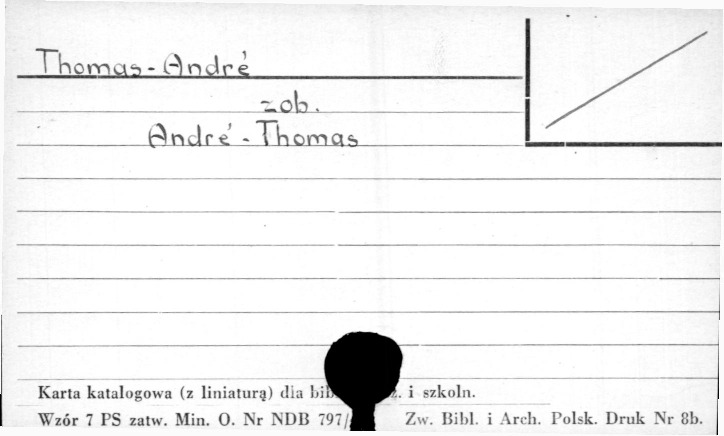 Thomas-André
zob.
André-Thomas
Karta katalogowa (z liniaturą) dla i szkoln.
Wzór 7 PS zatw. Min. O. Nr NDB 797/ Zw. Bibl. i Arch. Polsk. Druk Nr 8b.